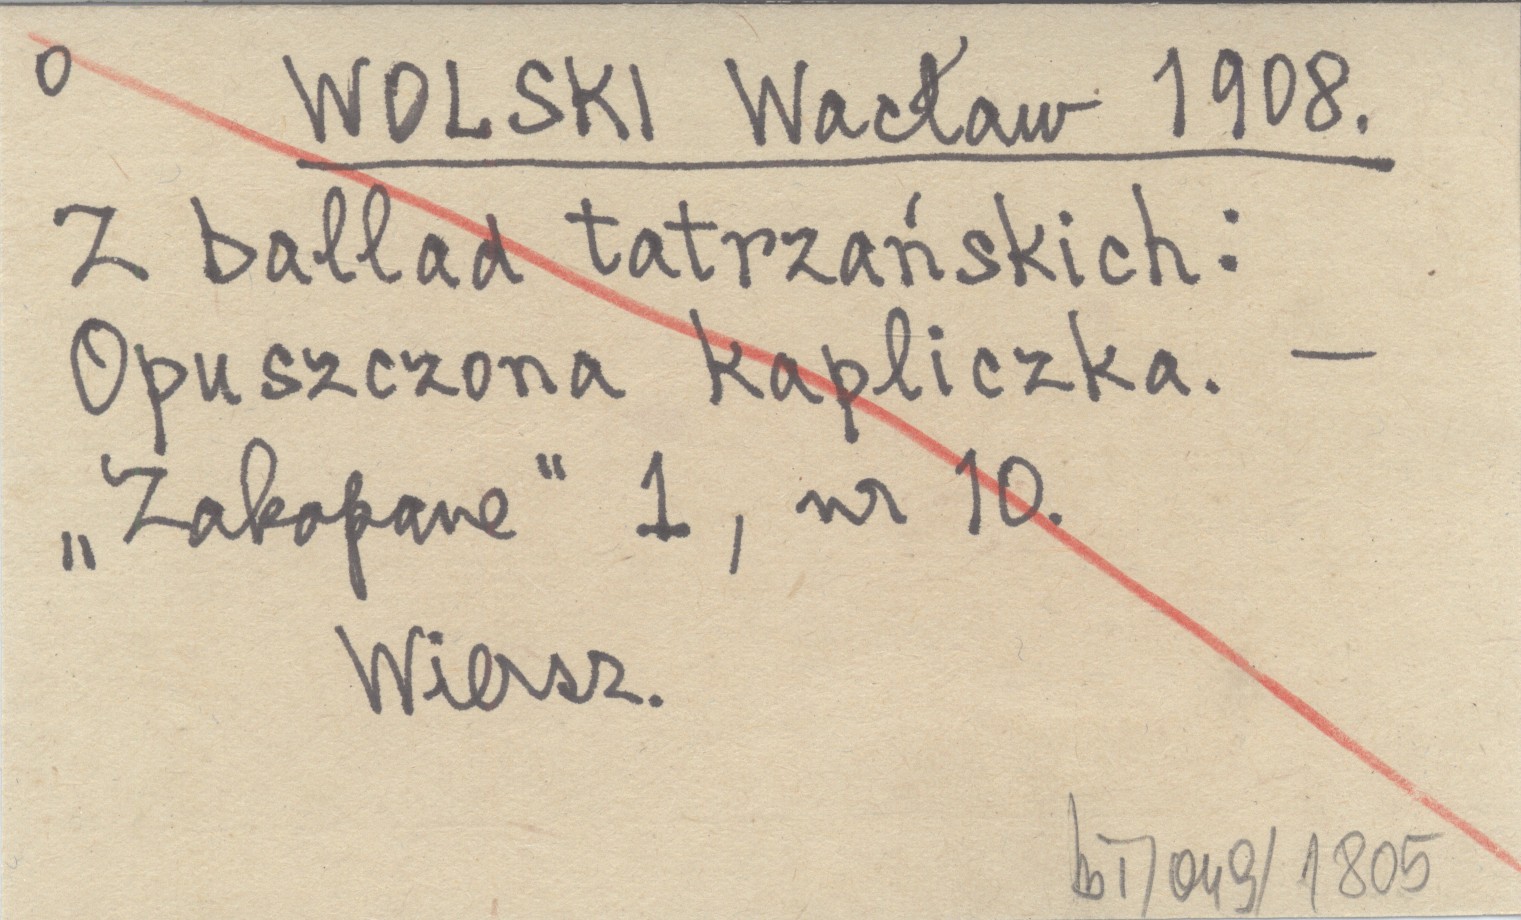 o WOLSKI Wacław 1908.
Z ballad tatrzańskich:
Opuszczona kapliczka. —
„Zakopane" 1, nr 10.
Wiersz.
bT/049/1805